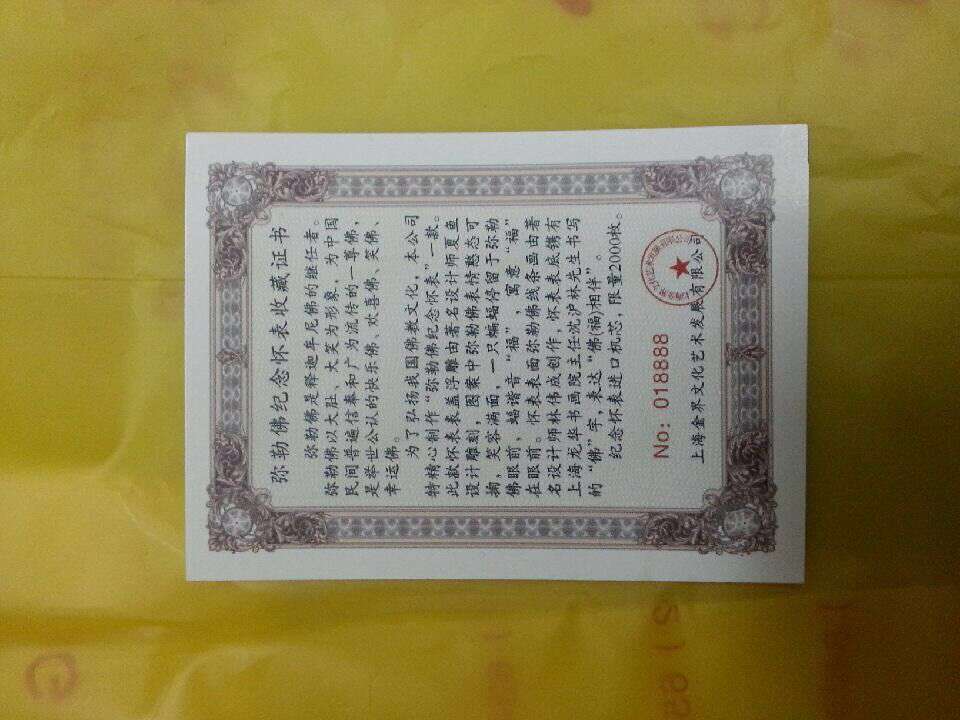 弥勒佛纪念怀表收藏证书
弥勒佛是释迦牟尼佛的继任者。
弥勒佛以大肚、大笑为形象，为中国
民间普遍信奉和广为流传的一尊佛，
是举世公认的快乐佛、欢喜佛、笑佛、
幸运佛。
为了弘扬我国佛教文化，本公司
特精心创作“弥勒佛纪念怀表”一款。
此款怀表表盖浮雕由著名设计师夏鱼
设计雕刻，图案中弥勒佛表情憨态可
掬，笑容满面，一只蝙蝠停留于弥勒
佛眼前，蝠谐音“福”，寓意“福”
在眼前。怀表表面弥勒佛线条画由著
名设计师林伟成创作，怀表表底镌有
上海龙华书画院主任沈沪林先生书写
的“佛”字，表达“佛(福)相伴”。
纪念怀表进口机芯，限量2000枚。
No: 018888
上海金界文化艺术发展有限公司